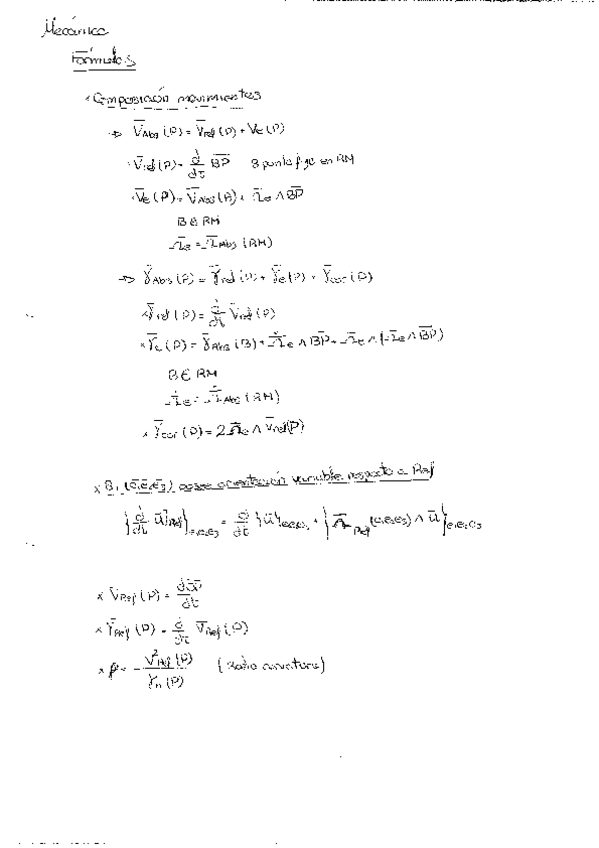 Mecánica
Fórmulas
* Composición movimientos
→ V̄Abs (P) = V̄ref (P) + V̄e (P)
· V̄ref (P) = d/dt B̄P̄ B punto fijo en RM
· V̄e (P) = V̄Abs (B) + Ω̄e ∧ B̄P̄
B ∈ RM
Ω̄e = Ω̄Abs (RM)
→ γ̄Abs (P) = γ̄rel (P) + γ̄e (P) + γ̄cor (P)
× γ̄rel (P) = d/dt V̄ref (P)
× γ̄e (P) = γ̄Abs (B) + Ω̄̇e ∧ B̄P̄ + Ω̄e ∧ (Ω̄e ∧ B̄P̄)
B ∈ RM
Ω̄̇e = Ω̄̇Abs (RM)
× γ̄cor (P) = 2 Ω̄e ∧ V̄ref (P)
× B₁ (ē₁ē₂ē₃) posee orientación variable respecto a Ref
{d/dt ū]Ref}e₁e₂e₃ = d/dt {ū}e₁e₂e₃ + {Ω̄Ref (e₁e₂e₃) ∧ ū}e₁e₂e₃
× V̄Ref (P) = d ŌP̄/dt
× γ̄Ref (P) = d/dt V̄Ref (P)
× ρ = - V²Ref (P)/γn (P) (Radio curvatura)